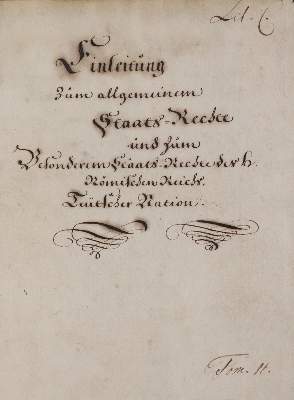 Lit. C.
Einleitung
Zum allgemeinem
Staats-Rechte
und zum
Besonderem Staats-Rechte des h.
Römischen Reichs.
Teütscher Nation.
Tom. II.